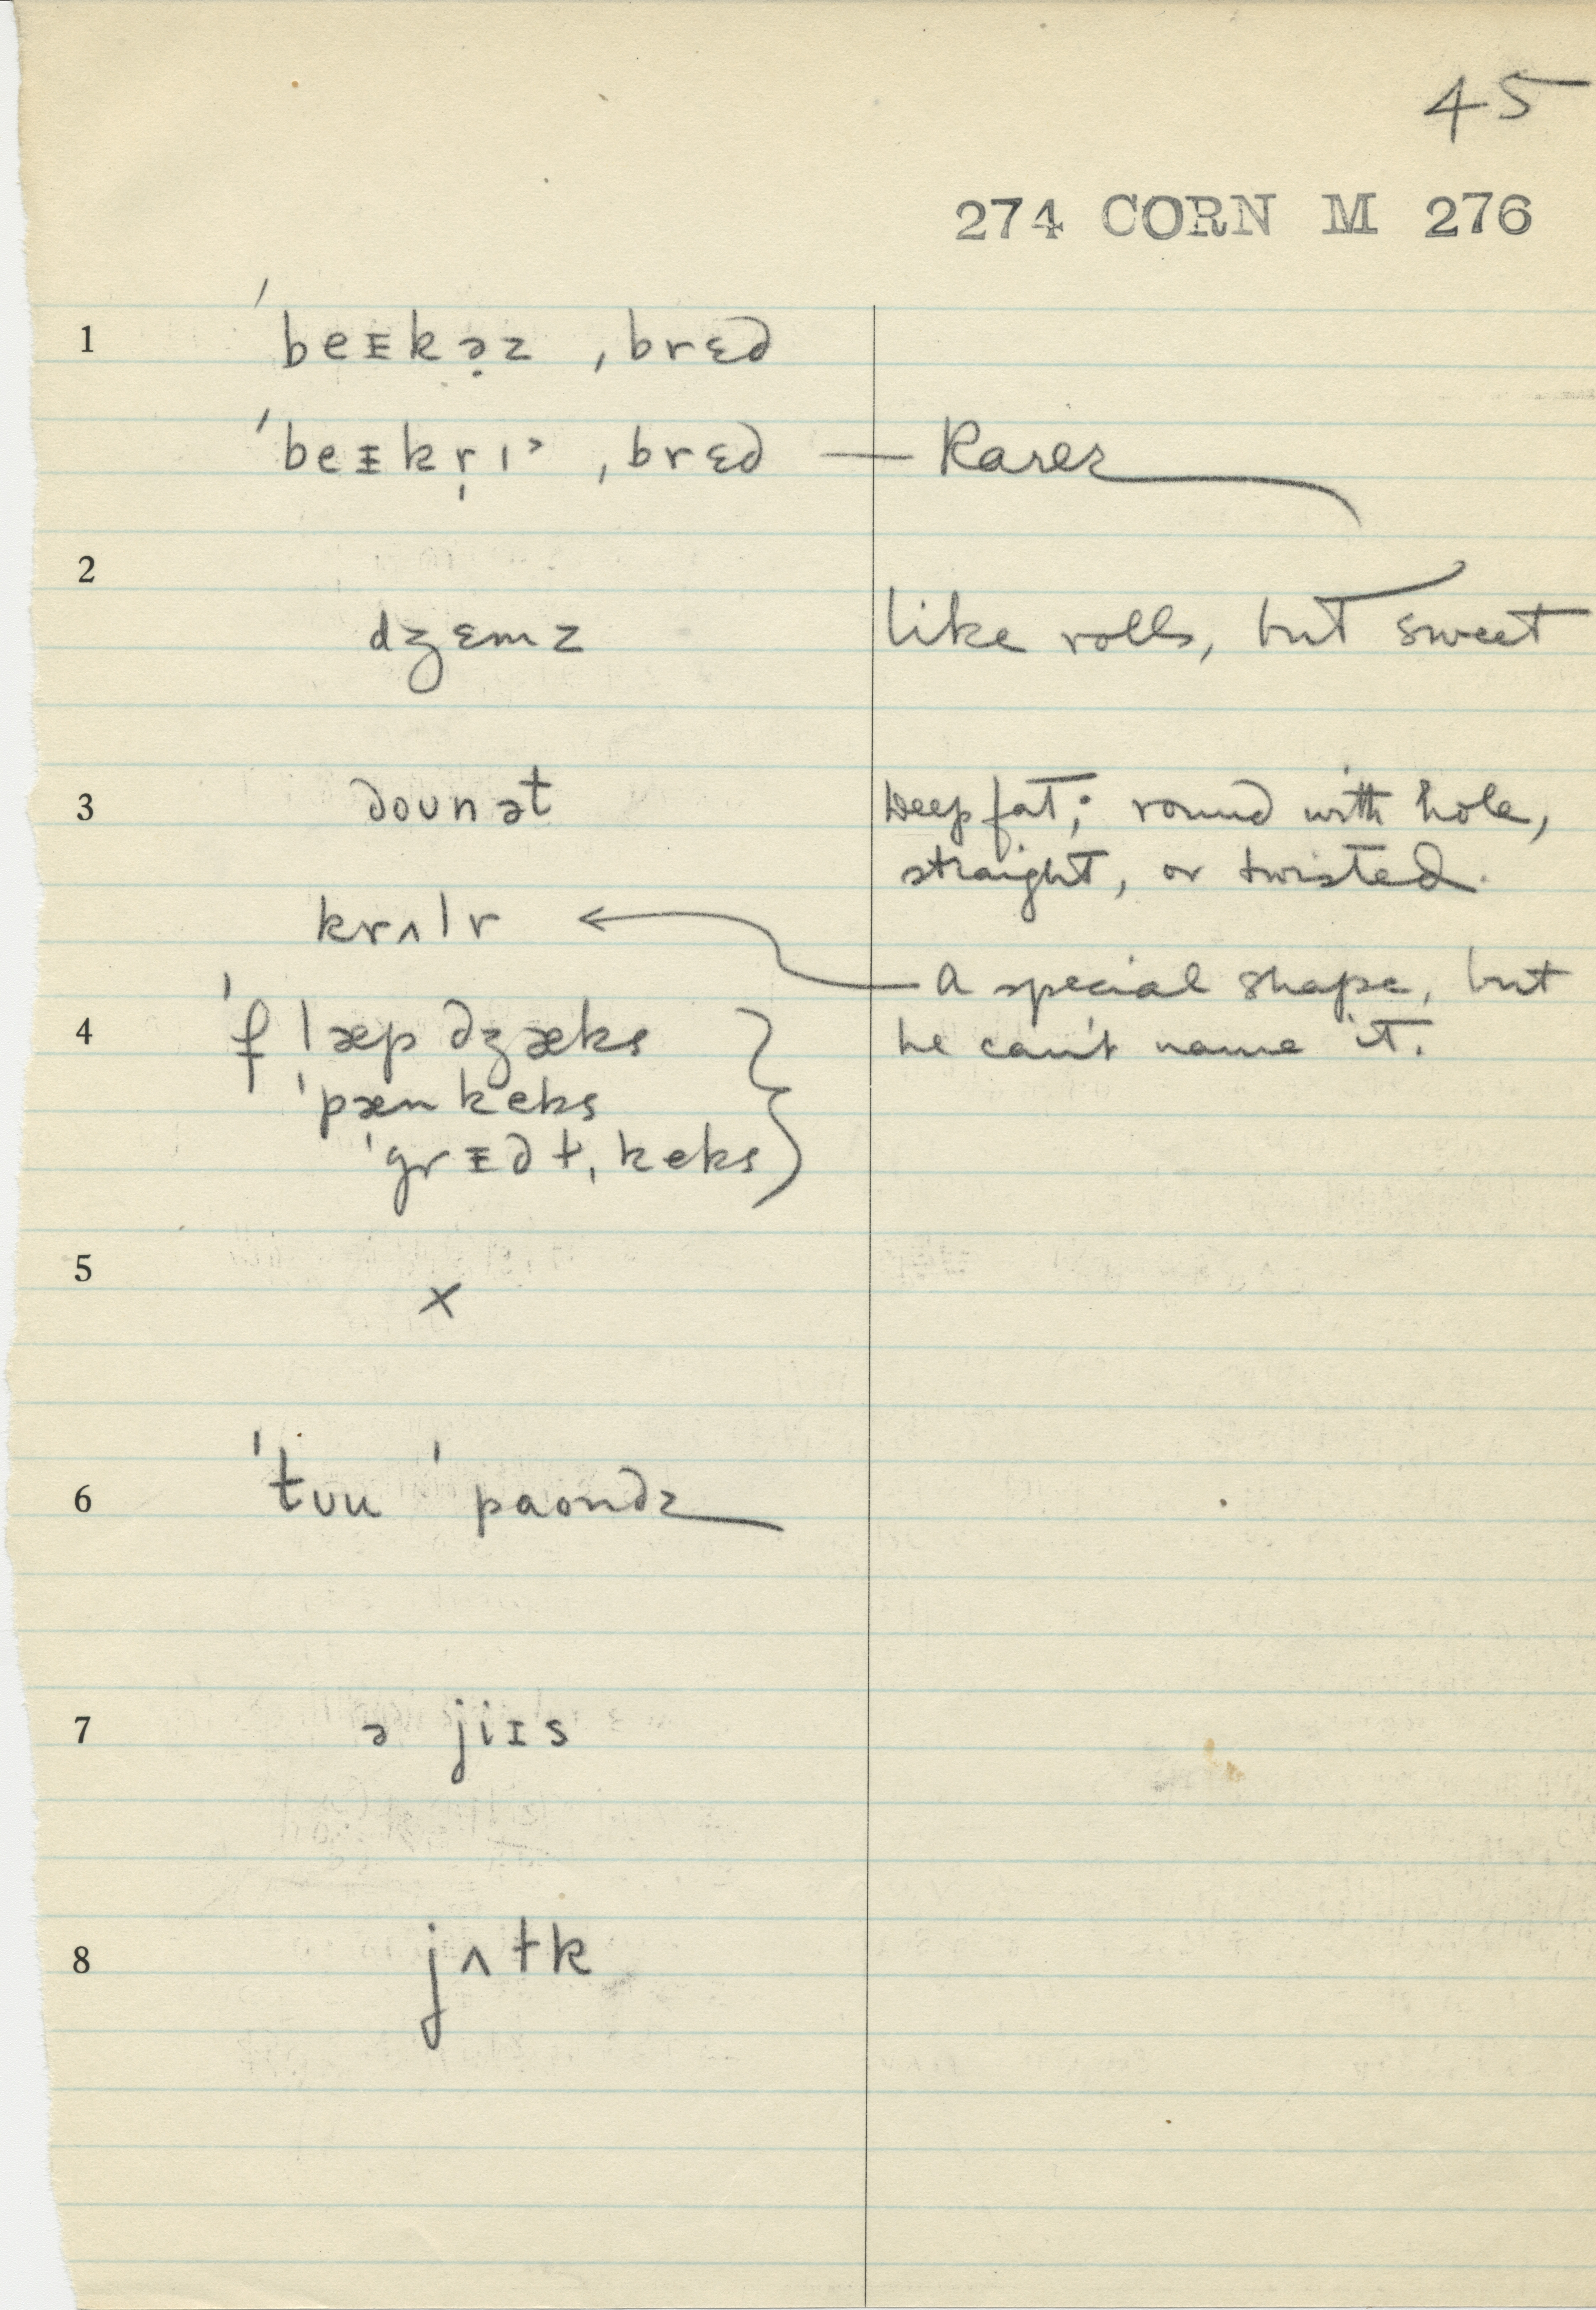 45
274 CORN M 276
1 ˈbeᵻkə̣z ˌbrɛd
ˈbeᵻkr̩ɪ˃ ˌbrɛd — Rarer
2
dʒɛmz like rolls, but sweet
3 dounət Deep fat; round with hole,
straight, or twisted.
krʌlr ← A special shape, but
4 ˈflæpdʒæks he can't name it.
ˈpænkeks
ˈgrᵻdɫˌkeks
5
x
6 ˈtʊu ˈpaondz
7 ə jiɪs
8 jʌɫk